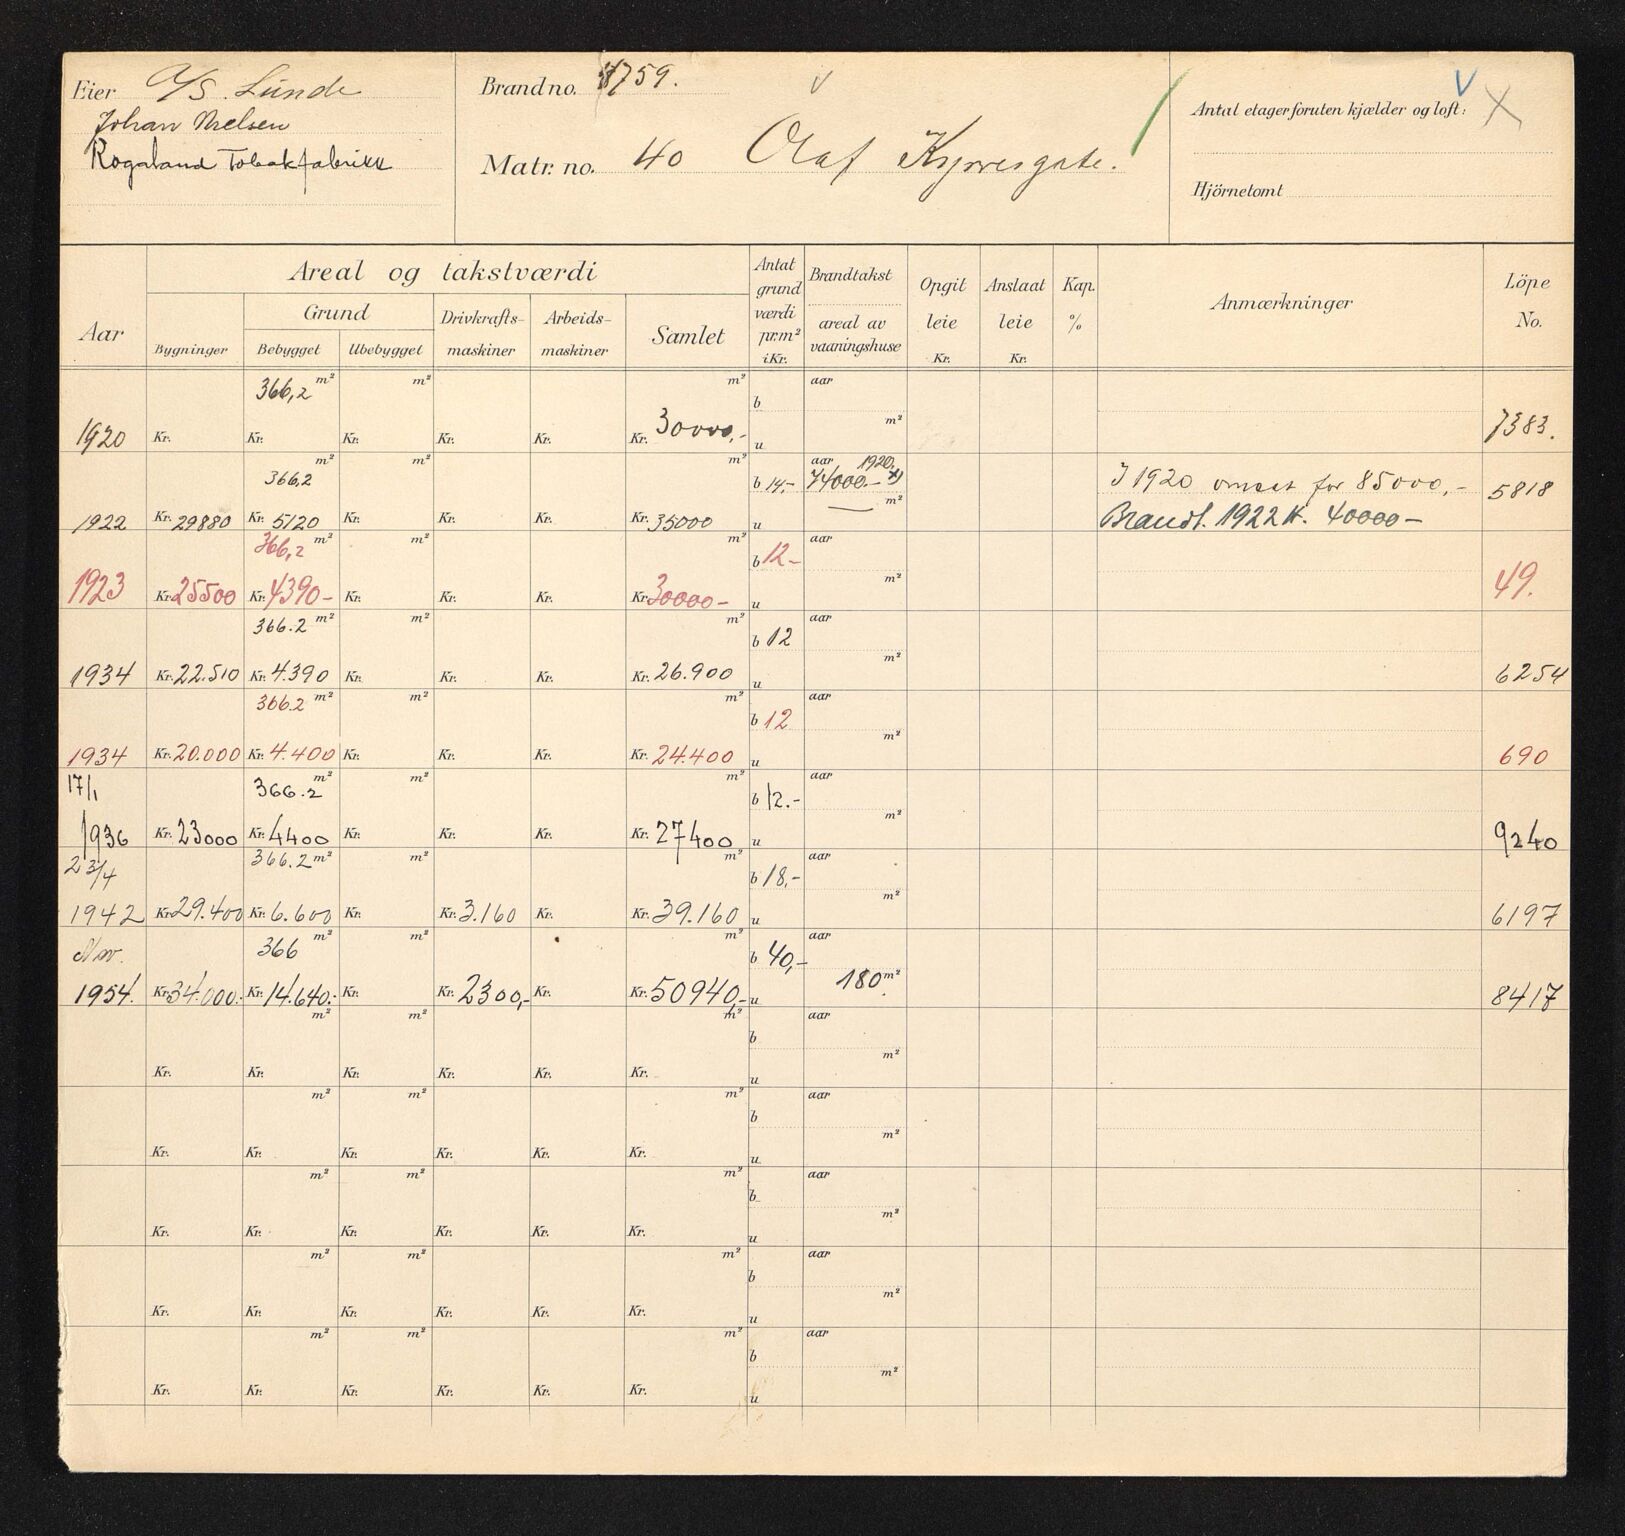 Eier A/S. Lunde
Johan Nielsen
Rogaland Tobakfabrikk
Brand no. 1759.
Matr. no. 40 Olaf Kyrresgate.
Antal etager foruten kjælder og loft:
Hjörnetomt
Aar
Areal og takstværdi
Bygninger
Grund
Bebygget Ubebygget
Drivkrafts-
maskiner
Arbeids-
maskiner
Samlet
Antat
grund
værdi
pr.m²
i Kr.
Brandtakst
areal av
vaaningshuse
Opgit
leie
Kr.
Anslaat
leie
Kr.
Kap.
%
Anmærkninger
Löpe
No.
366,2 m² m² m² b aar
1920 Kr. Kr. Kr. Kr. Kr. Kr. 30000,- u m² 7383.
366,2 m² m² m² b 14,- aar 1920. 74000.- x) I 1920 omsat for 85000,-
1922 Kr. 29880 Kr. 5120 Kr. Kr. Kr. Kr. 35000 u m² Brandt. 1922 K. 40000- 5818
366,2 m² m² m² b 12- aar
1923 Kr. 25500 Kr. 4390- Kr. Kr. Kr. Kr. 30000- u m² 49.
366.2 m² m² m² b 12 aar
1934 Kr. 22.510 Kr. 4.390 Kr. Kr. Kr. Kr. 26.900 u m² 6254
366.2 m² m² m² b 12 aar
1934 Kr. 20.000 Kr. 4.400 Kr. Kr. Kr. Kr. 24.400 u m² 690
17/1 366.2 m² m² m² b 12.- aar
1936 Kr. 23000 Kr. 4400 Kr. Kr. Kr. Kr. 27400 u m² 9240
23/4 366.2 m² m² m² b 18,- aar
1942 Kr. 29.400 Kr. 6.600 Kr. Kr. 3.160 Kr. Kr. 39.160 u m² 6197
Nov. 366 m² m² m² b 40,- aar
1954. Kr. 34.000.- Kr. 14.640.- Kr. Kr. 2300,- Kr. Kr. 50940,- u 180 m² 8417
m² m² m² b aar
Kr. Kr. Kr. Kr. Kr. Kr. u m²
m² m² m² b aar
Kr. Kr. Kr. Kr. Kr. Kr. u m²
m² m² m² b aar
Kr. Kr. Kr. Kr. Kr. Kr. u m²
m² m² m² b aar
Kr. Kr. Kr. Kr. Kr. Kr. u m²
m² m² m² b aar
Kr. Kr. Kr. Kr. Kr. Kr. u m²